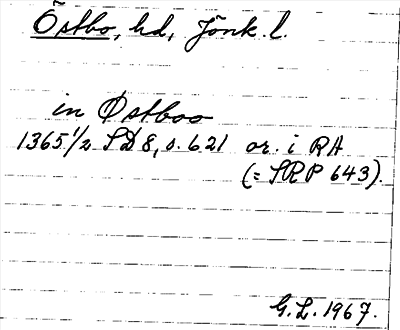 Östbo, hd, Jönk. l.
in Østboo
1365 1/2 SD 8, s. 621 or. i RA
(= SRP 643).
G.L. 1967.